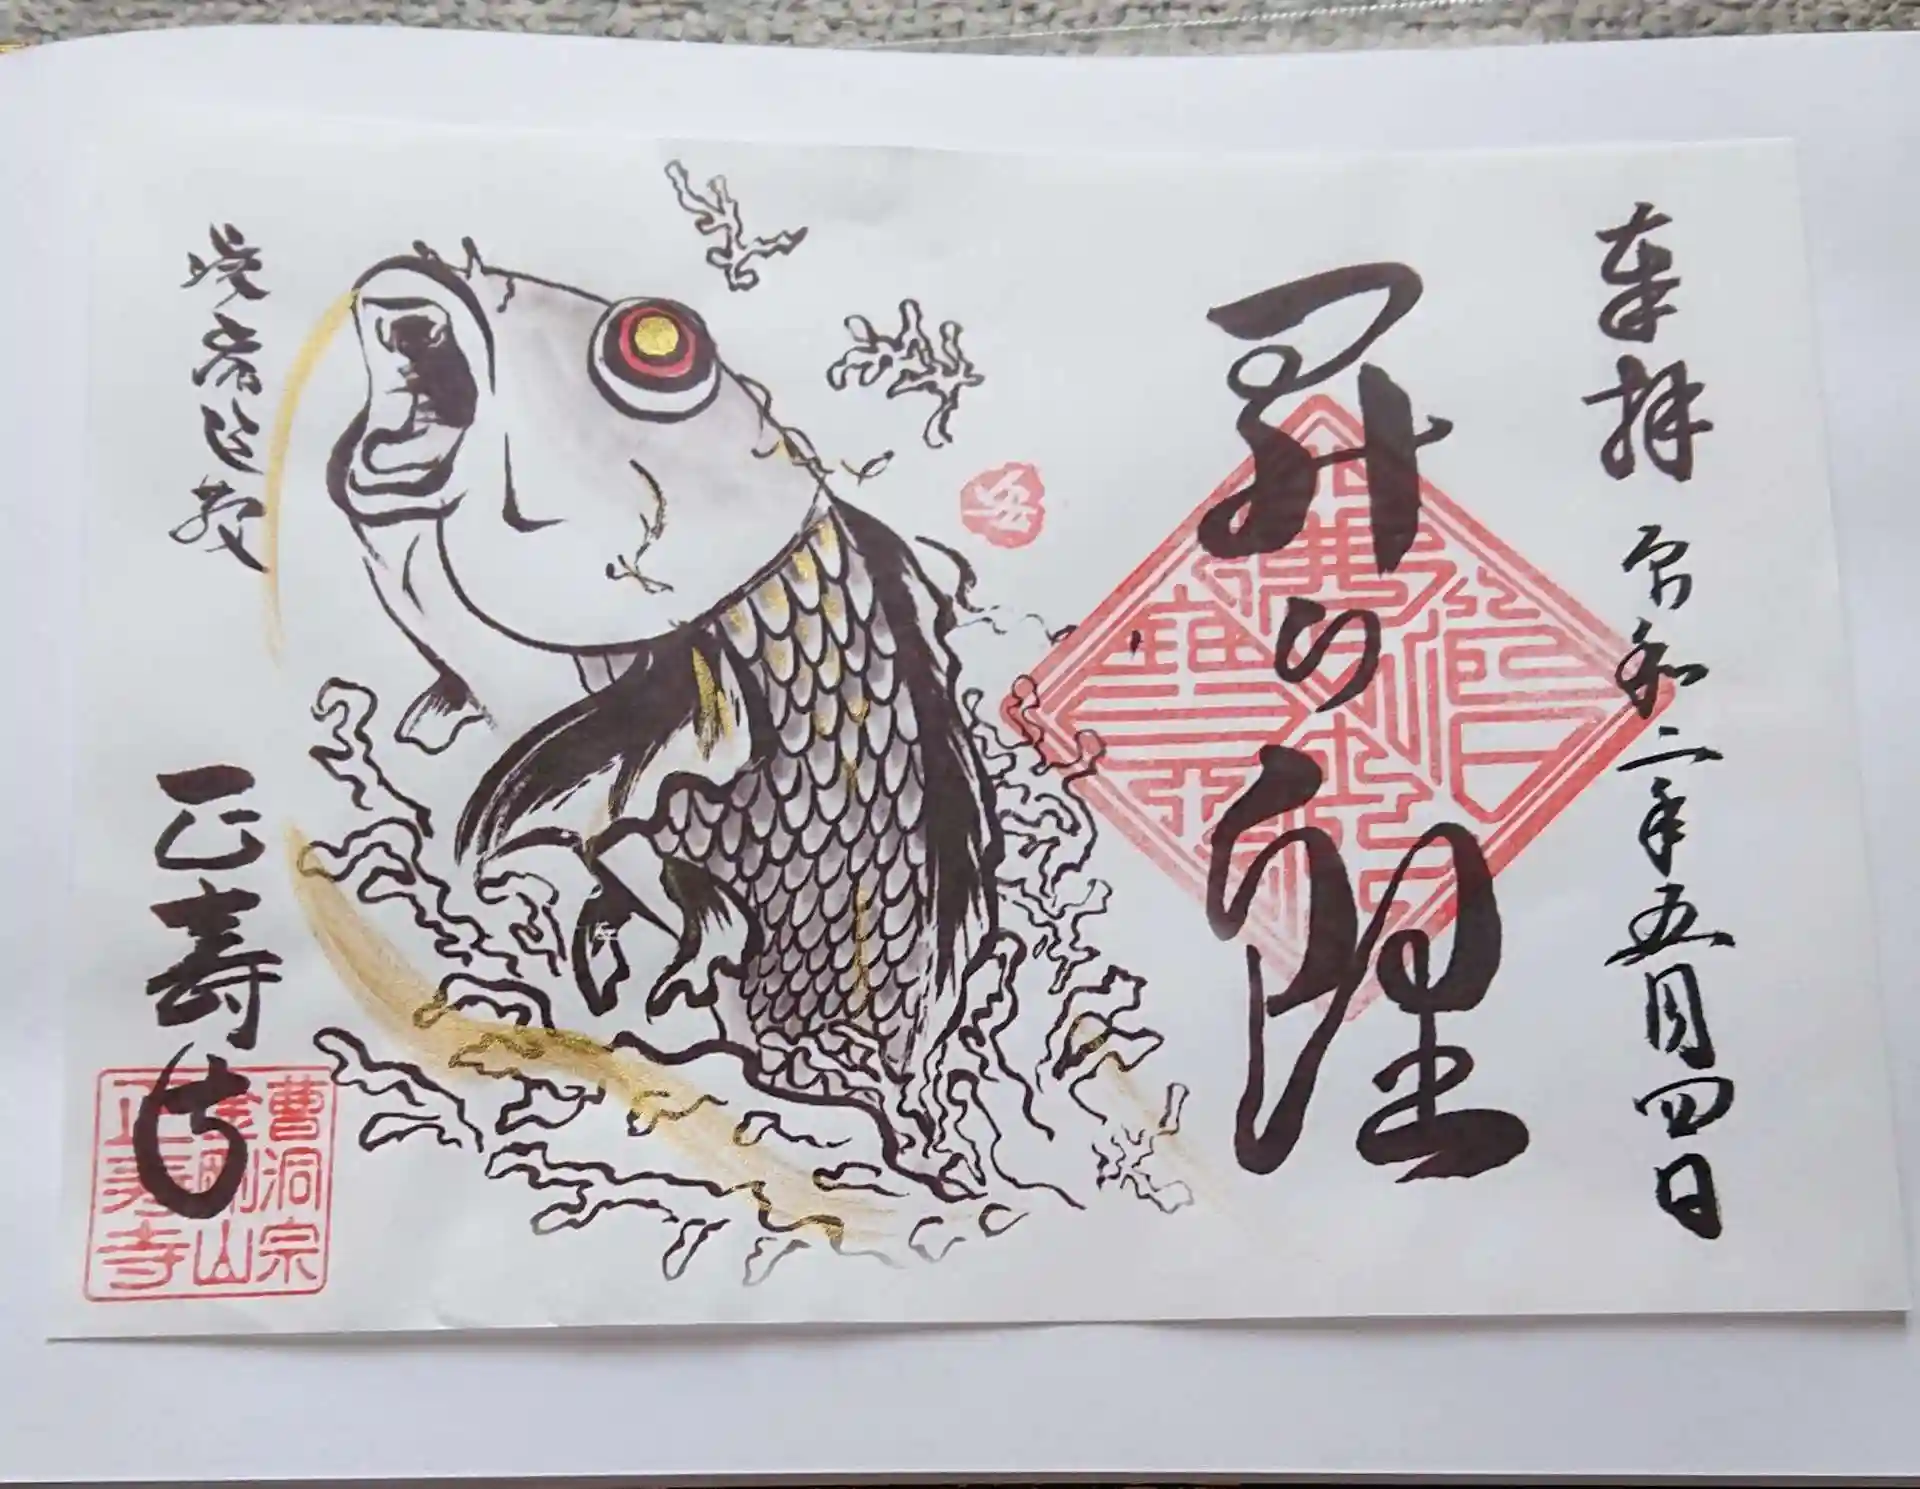 奉拝 令和二年五月四日
昇り鯉
疫病退散
正壽寺
曹洞宗
金剛山
正寿寺